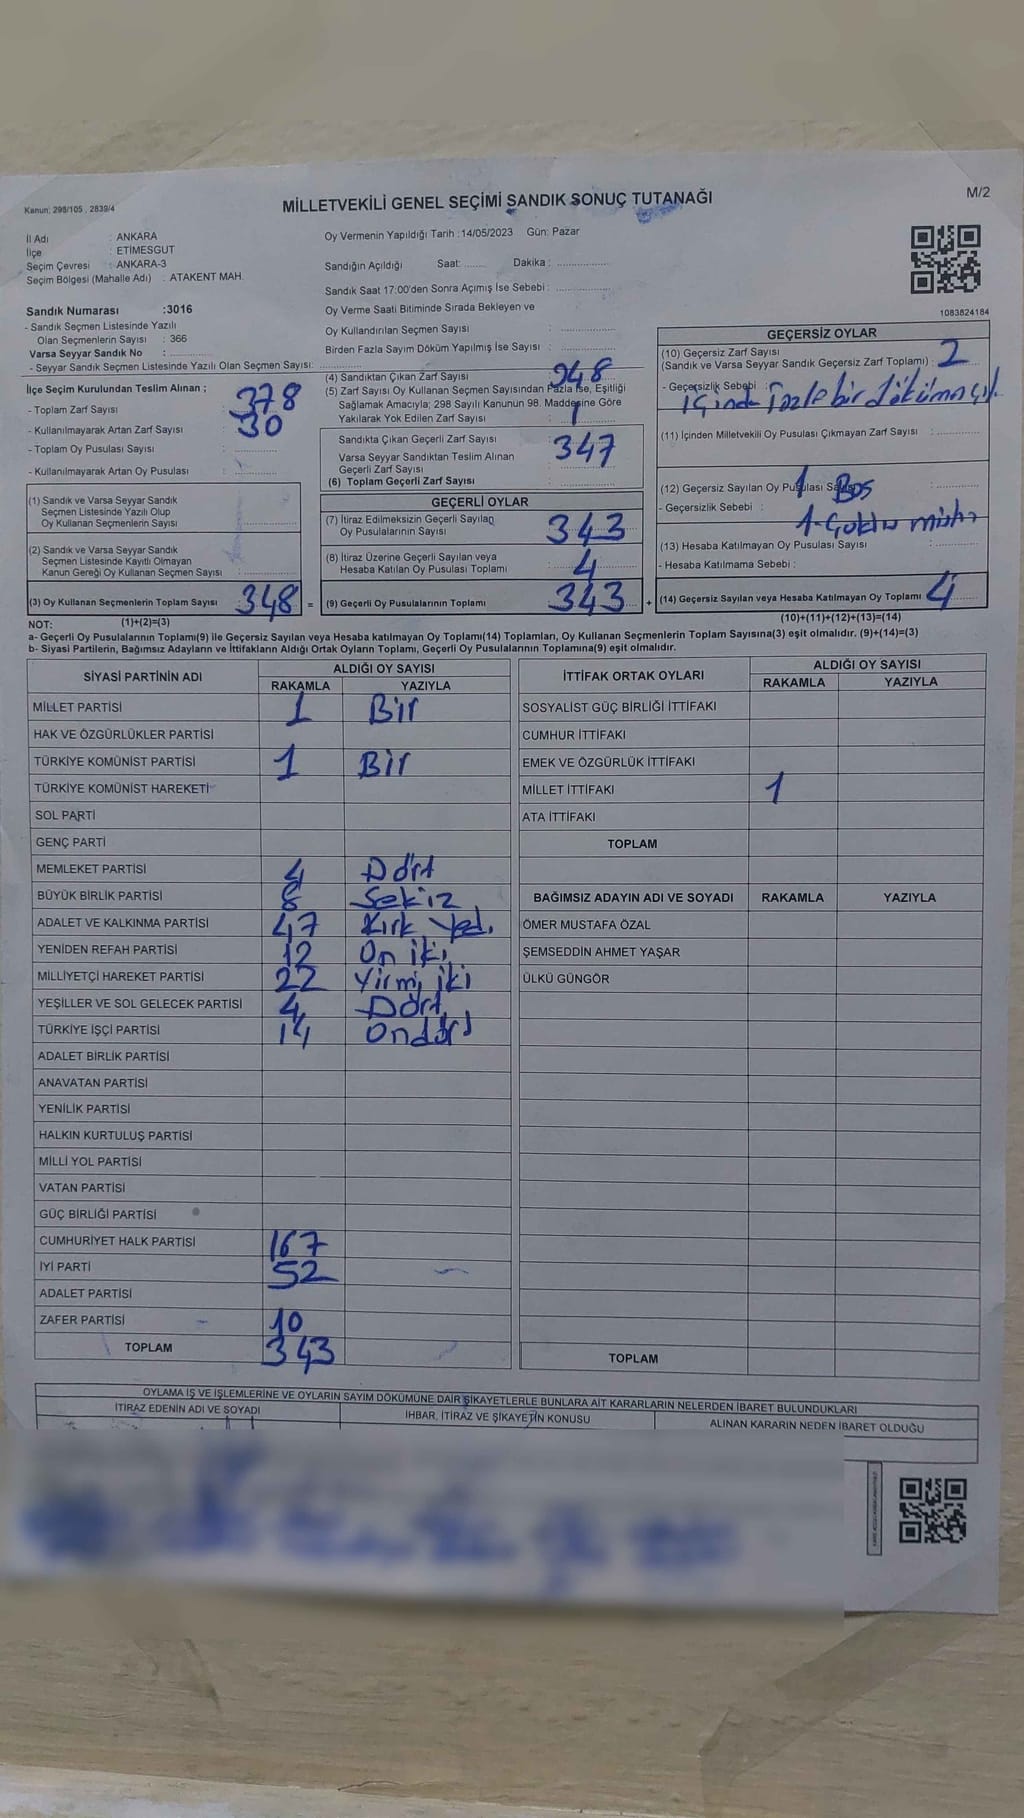 Kanun; 298/105 , 2839/4
MİLLETVEKİLİ GENEL SEÇİMİ SANDIK SONUÇ TUTANAĞI
M/2
İl Adı : ANKARA
İlçe : ETİMESGUT
Seçim Çevresi : ANKARA-3
Seçim Bölgesi (Mahalle Adı) : ATAKENT MAH.
Oy Vermenin Yapıldığı Tarih :14/05/2023 Gün: Pazar
Sandığın Açıldığı Saat: ........ Dakika : ..............
Sandık Saat 17:00'den Sonra Açımış İse Sebebi : ..............
Oy Verme Saati Bitiminde Sırada Bekleyen ve
Oy Kullandırılan Seçmen Sayısı : ..............
Birden Fazla Sayım Döküm Yapılmış İse Sayısı : ..............
1083824184
Sandık Numarası :3016
- Sandık Seçmen Listesinde Yazılı
Olan Seçmenlerin Sayısı : 366
Varsa Seyyar Sandık No : ..............
- Seyyar Sandık Seçmen Listesinde Yazılı Olan Seçmen Sayısı: ..............
İlçe Seçim Kurulundan Teslim Alınan ;
- Toplam Zarf Sayısı : 378
- Kullanılmayarak Artan Zarf Sayısı : 30
- Toplam Oy Pusulası Sayısı : ..............
- Kullanılmayarak Artan Oy Pusulası : ..............
(1) Sandık ve Varsa Seyyar Sandık
Seçmen Listesinde Yazılı Olup
Oy Kullanan Seçmenlerin Sayısı : ..............
(2) Sandık ve Varsa Seyyar Sandık
Seçmen Listesinde Kayıtlı Olmayan
Kanun Gereği Oy Kullanan Seçmen Sayısı : ..............
(3) Oy Kullanan Seçmenlerin Toplam Sayısı 348 =
(4) Sandıktan Çıkan Zarf Sayısı : 348
(5) Zarf Sayısı Oy Kullanan Seçmen Sayısından Fazla İse, Eşitliği
Sağlamak Amacıyla; 298 Sayılı Kanunun 98. Maddesine Göre
Yakılarak Yok Edilen Zarf Sayısı : 1
Sandıkta Çıkan Geçerli Zarf Sayısı : 347
Varsa Seyyar Sandıktan Teslim Alınan
Geçerli Zarf Sayısı
(6) Toplam Geçerli Zarf Sayısı : ..............
GEÇERLİ OYLAR
(7) İtiraz Edilmeksizin Geçerli Sayılan
Oy Pusulalarının Sayısı : 343
(8) İtiraz Üzerine Geçerli Sayılan veya
Hesaba Katılan Oy Pusulası Toplamı : 4
(9) Geçerli Oy Pusulalarının Toplamı : 343 +
GEÇERSİZ OYLAR
(10) Geçersiz Zarf Sayısı
(Sandık ve Varsa Seyyar Sandık Geçersiz Zarf Toplamı) : 2
- Geçersizlik Sebebi :
içinde fazla bir döküman
(11) İçinden Milletvekili Oy Pusulası Çıkmayan Zarf Sayısı : ..............
(12) Geçersiz Sayılan Oy Pusulası Sayısı 1 Boş
- Geçersizlik Sebebi :
1-Çoktu
(13) Hesaba Katılmayan Oy Pusulası Sayısı : ..............
- Hesaba Katılmama Sebebi :
(14) Geçersiz Sayılan veya Hesaba Katılmayan Oy Toplamı 4
(10)+(11)+(12)+(13)=(14)
NOT: (1)+(2)=(3)
a- Geçerli Oy Pusulalarının Toplamı(9) ile Geçersiz Sayılan veya Hesaba katılmayan Oy Toplamı(14) Toplamları, Oy Kullanan Seçmenlerin Toplam Sayısına(3) eşit olmalıdır. (9)+(14)=(3)
b- Siyasi Partilerin, Bağımsız Adayların ve İttifakların Aldığı Ortak Oyların Toplamı, Geçerli Oy Pusulalarının Toplamına(9) eşit olmalıdır.
SİYASİ PARTİNİN ADI
ALDIĞI OY SAYISI
RAKAMLA YAZIYLA
MİLLET PARTİSİ 1 Bir
HAK VE ÖZGÜRLÜKLER PARTİSİ
TÜRKİYE KOMÜNİST PARTİSİ 1 Bir
TÜRKİYE KOMÜNİST HAREKETİ
SOL PARTİ
GENÇ PARTİ
MEMLEKET PARTİSİ 4 Dört
BÜYÜK BİRLİK PARTİSİ 8 Sekiz
ADALET VE KALKINMA PARTİSİ 47 Kırk Yedi
YENİDEN REFAH PARTİSİ 12 On iki
MİLLİYETÇİ HAREKET PARTİSİ 22 Yirmi iki
YEŞİLLER VE SOL GELECEK PARTİSİ 4 Dört
TÜRKİYE İŞÇİ PARTİSİ 14 Ondört
ADALET BİRLİK PARTİSİ
ANAVATAN PARTİSİ
YENİLİK PARTİSİ
HALKIN KURTULUŞ PARTİSİ
MİLLİ YOL PARTİSİ
VATAN PARTİSİ
GÜÇ BİRLİĞİ PARTİSİ
CUMHURİYET HALK PARTİSİ 167
İYİ PARTİ 52
ADALET PARTİSİ
ZAFER PARTİSİ 10
TOPLAM 343
İTTİFAK ORTAK OYLARI
ALDIĞI OY SAYISI
RAKAMLA YAZIYLA
SOSYALİST GÜÇ BİRLİĞİ İTTİFAKI
CUMHUR İTTİFAKI
EMEK VE ÖZGÜRLÜK İTTİFAKI
MİLLET İTTİFAKI 1
ATA İTTİFAKI
TOPLAM
BAĞIMSIZ ADAYIN ADI VE SOYADI RAKAMLA YAZIYLA
ÖMER MUSTAFA ÖZAL
ŞEMSEDDİN AHMET YAŞAR
ÜLKÜ GÜNGÖR
TOPLAM
OYLAMA İŞ VE İŞLEMLERİNE VE OYLARIN SAYIM DÖKÜMÜNE DAİR ŞİKAYETLERLE BUNLARA AİT KARARLARIN NELERDEN İBARET BULUNDUKLARI
İTİRAZ EDENİN ADI VE SOYADI İHBAR, İTİRAZ VE ŞİKAYETİN KONUSU ALINAN KARARIN NEDEN İBARET OLDUĞU